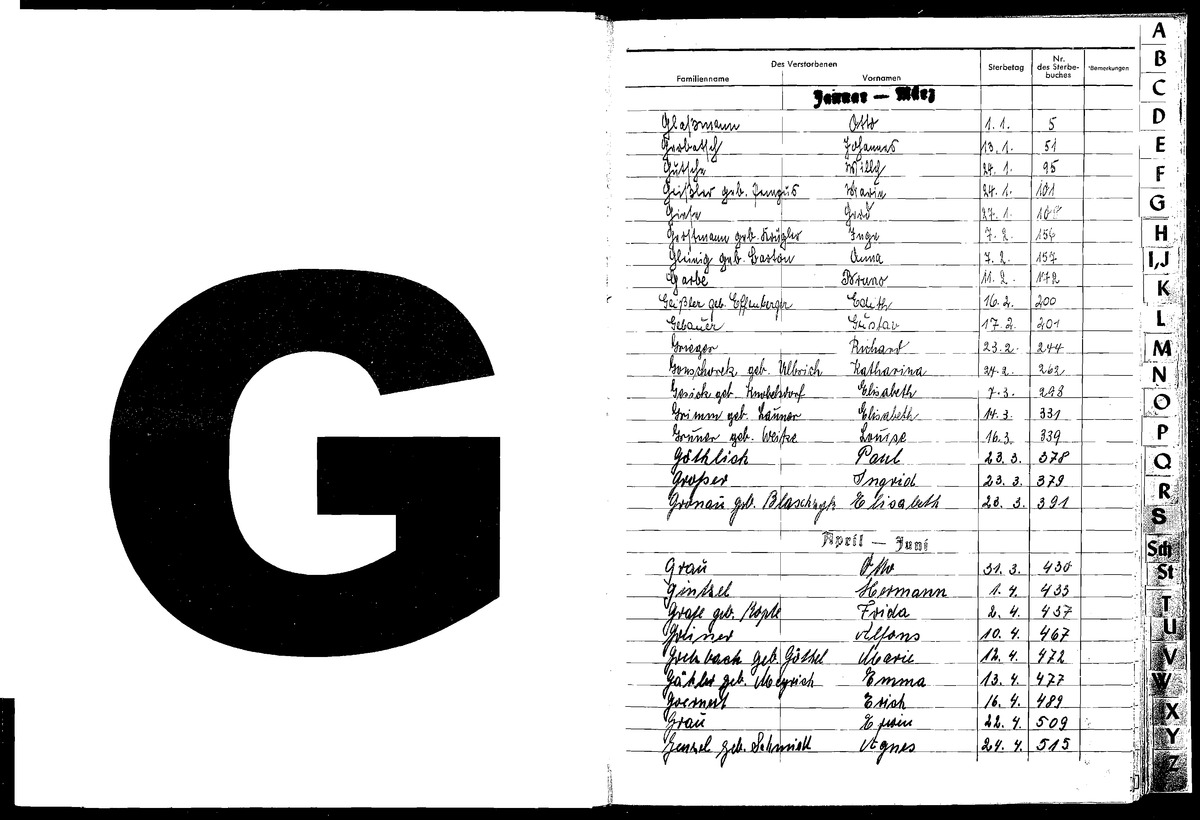 G
Des Verstorbenen
Familienname Vornamen Sterbetag Nr. des Sterbebuches Bemerkungen
Januar — März
Glaßmann Otto 1. 1. 5
Johannes 13. 1. 51
Gutsche Willy 24. 1. 95
Geißler geb. Marie 24. 1. 101
Giese Gerd 27. 1.
Gerstmann geb. Krügler Inge 7. 2. 156
Gleinig geb. Barton Anna 7. 2. 157
Garbe Bruno 11. 2. 172
Geißler geb. Effenberger Edith 16. 2. 200
Gebauer Gustav 17. 2. 201
Grieger Richard 23. 2. 244
Gonschorek geb. Ulbrich Katharina 24. 2. 262
Gesick geb. Knobelsdorf Elisabeth 7. 3. 298
Grimm geb. Launer Elisabeth 14. 3. 331
Gruner geb. Weitze Louise 16. 3. 339
Göthlich Paul 23. 3. 378
Großer Ingrid 23. 3. 379
Gronau geb. Blaschzyk Elisabeth 23. 3. 391
April — Juni
Grau Otto 31. 3. 430
Gintzel Hermann 1. 4. 433
Grafe geb. Kopte Frida 2. 4. 437
Greiner Alfons 10. 4. 467
geb. Göthel Marie 12. 4. 472
Gäbler geb. Meyrich Emma 13. 4. 477
Goernert Erich 16. 4. 489
Grau Erwin 22. 4. 509
Genzel geb. Schmidt Agnes 24. 4. 515
A
B
C
D
E
F
G
H
I,J
K
L
M
N
O
P
Q
R
S
Sch
St
T
U
V
W
X
Y
Z